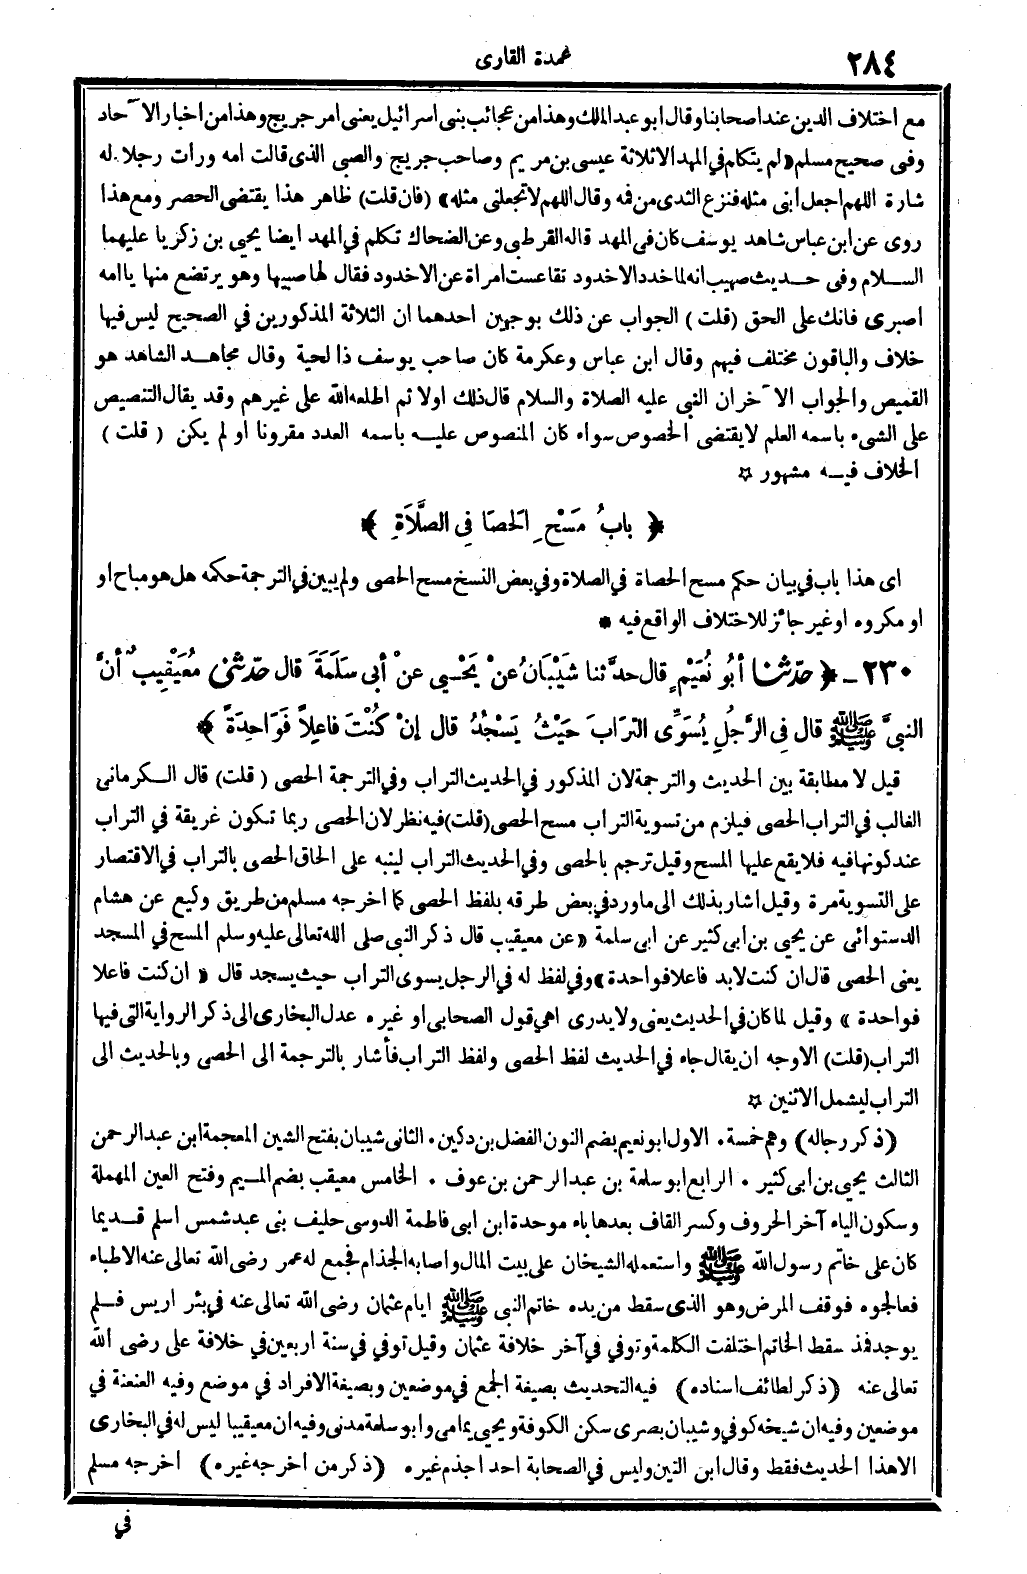 ٢٨٤
عمدة القارى
مع اختلاف الدين عند اصحابنا وقال ابو عبد الملك وهذا من عجائب بنى اسرائيل يعنى امر جريج وهذا من اخبار الآحاد
وفى صحيح مسلم «لم يتكلم في المهد الا ثلاثة عيسى بن مريم وصاحب جريج والصبى الذى قالت امه ورأت رجلا له
شارة اللهم اجعل ابنى مثله فنزع الثدى من فمه وقال اللهم لا تجعلنى مثله» (فان قلت) ظاهر هذا يقتضى الحصر ومع هذا
روى عن ابن عباس شاهد يوسف كان فى المهد قاله القرطبى وعن الضحاك تكلم في المهد ايضا يحيى بن زكريا عليهما
السلام وفى حديث صهيب انه لما خدد الاخدود تقاعست امرأة عن الاخدود فقال لها صبيها وهو يرتضع منها يا امه
اصبرى فانك على الحق (قلت) الجواب عن ذلك بوجهين احدهما ان الثلاثة المذكورين في الصحيح ليس فيها
خلاف والباقون مختلف فيهم وقال ابن عباس وعكرمة كان صاحب يوسف ذا لحية وقال مجاهد الشاهد هو
القميص والجواب الآخر ان النبى عليه الصلاة والسلام قال ذلك اولا ثم اطلعه الله على غيرهم وقد يقال التنصيص
على الشىء باسمه العلم لا يقتضى الخصوص سواء كان المنصوص عليه باسمه العدد مقرونا او لم يكن (قلت)
الخلاف فيه مشهور ☆
﴿ بابُ مَسْحِ الحَصَا فِى الصَّلَاةِ ﴾
اى هذا باب في بيان حكم مسح الحصاة في الصلاة وفي بعض النسخ مسح الحصى ولم يبين في الترجمة حكمه هل هو مباح او
او مكروه او غير جائز للاختلاف الواقع فيه *
٢٣٠ ـ ﴿ حدّثنا أبُو نُعَيْمٍ قال حدَّثنا شَيْبَانُ عنْ يَحْيى عنْ أبى سَلَمَةَ قال حدّثنى مُعَيْقِيبٌ أنَّ
النبىَّ ﷺ قال فِى الرَّجُلِ يُسَوِّى التُّرَابَ حَيْثُ يَسْجُدُ قال إنْ كُنْتَ فاعِلاً فَوَاحِدَةً ﴾
قيل لا مطابقة بين الحديث والترجمة لان المذكور في الحديث التراب وفي الترجمة الحصى (قلت) قال الكرمانى
الغالب في التراب الحصى فيلزم من تسوية التراب مسح الحصى (قلت) فيه نظر لان الحصى ربما تكون غريقة في التراب
عند كونها فيه فلا يقع عليها المسح وقيل ترجم بالحصى وفي الحديث التراب لينبه على الحاق الحصى بالتراب في الاقتصار
على التسوية مرة وقيل اشار بذلك الى ما ورد في بعض طرقه بلفظ الحصى كما اخرجه مسلم من طريق وكيع عن هشام
الدستوائى عن يحيى بن ابى كثير عن ابى سلمة «عن معيقيب قال ذكر النبى صلى الله تعالى عليه وسلم المسح في المسجد
يعنى الحصى قال ان كنت لابد فاعلا فواحدة» وفي لفظ له في الرجل يسوى التراب حيث يسجد قال «ان كنت فاعلا
فواحدة» وقيل لما كان في الحديث يعنى ولا يدرى اهى قول الصحابى او غيره عدل البخارى الى ذكر الرواية التى فيها
التراب (قلت) الاوجه ان يقال جاء في الحديث لفظ الحصى ولفظ التراب فأشار بالترجمة الى الحصى وبالحديث الى
التراب ليشمل الاثنين ☆
(ذكر رجاله) وهم خمسة. الاول ابو نعيم بضم النون الفضل بن دكين. الثانى شيبان بفتح الشين المعجمة ابن عبد الرحمن
الثالث يحيى بن ابى كثير. الرابع ابو سلمة بن عبد الرحمن بن عوف. الخامس معيقب بضم الميم وفتح العين المهملة
وسكون الياء آخر الحروف وكسر القاف بعدها باء موحدة ابن ابى فاطمة الدوسى حليف بنى عبد شمس اسلم قديما
كان على خاتم رسول الله ﷺ واستعمله الشيخان على بيت المال واصابه الجذام فجمع له عمر رضى الله تعالى عنه الاطباء
فعالجوه فوقف المرض وهو الذى سقط من يده خاتم النبى ﷺ ايام عثمان رضى الله تعالى عنه في بئر اريس فلم
يوجد فمذ سقط الخاتم اختلفت الكلمة وتوفي في آخر خلافة عثمان وقيل توفي في سنة اربعين في خلافة على رضى الله
تعالى عنه (ذكر لطائف اسناده) فيه التحديث بصيغة الجمع في موضعين وبصيغة الافراد في موضع وفيه العنعنة في
موضعين وفيه ان شيخه كوفي وشيبان بصرى سكن الكوفة ويحيى يمامى وابو سلمة مدنى وفيه ان معيقيبا ليس له في البخارى
الا هذا الحديث فقط وقال ابن التين وليس في الصحابة احد اجذم غيره (ذكر من اخرجه غيره) أخرجه مسلم
في